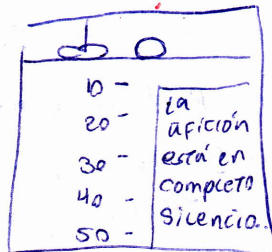 10 -
20 -
30 -
40 -
50 -
La
afición
está en
completo
silencio.